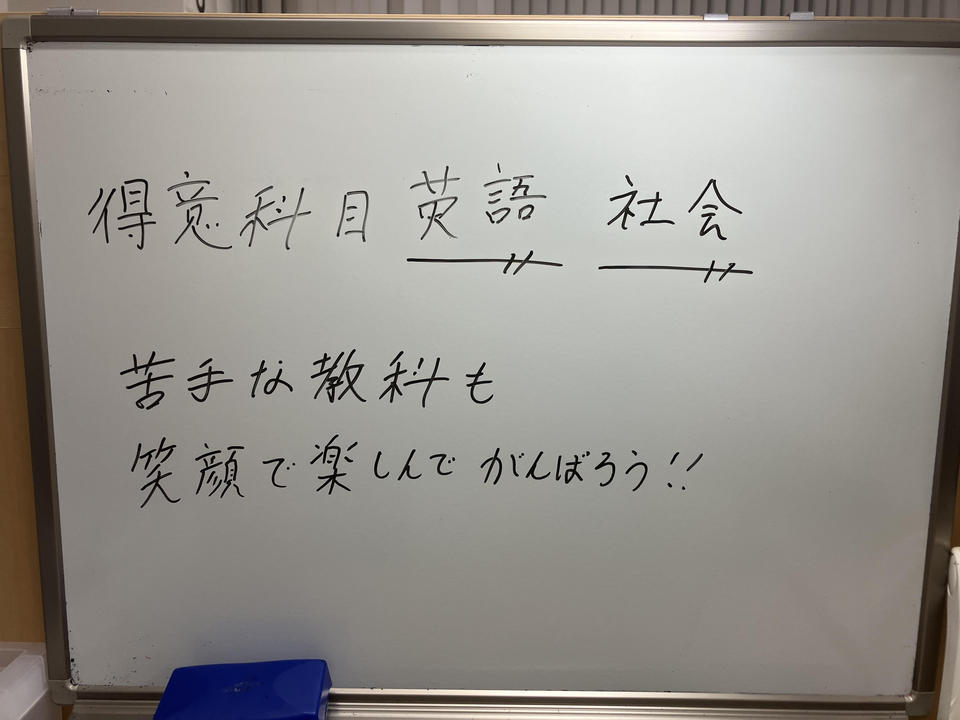 得意科目 英語 社会
苦手な教科も
笑顔で楽しんで がんばろう!!